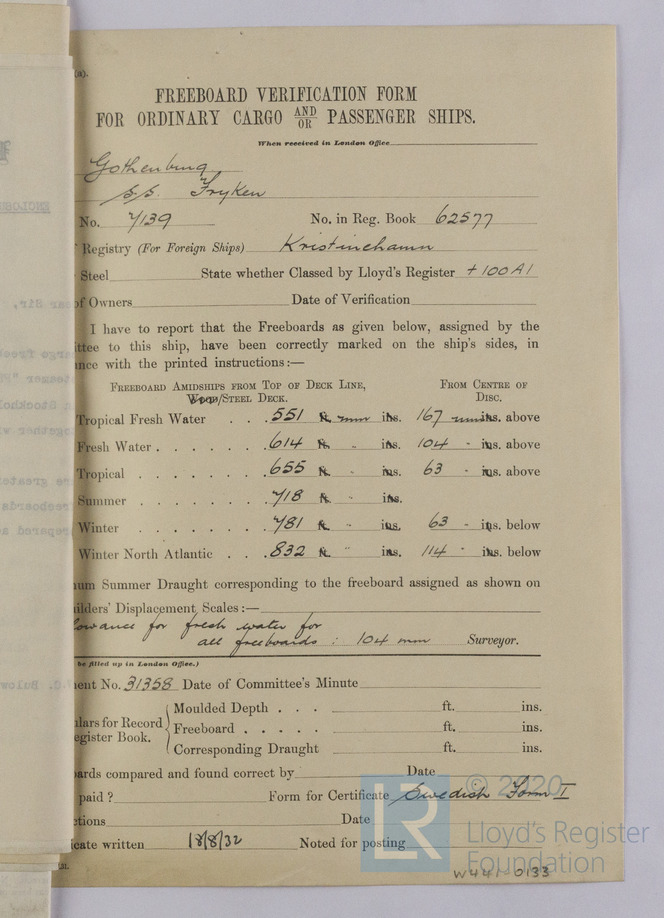 (a).
FREEBOARD VERIFICATION FORM
FOR ORDINARY CARGO AND/OR PASSENGER SHIPS.
When received in London Office
Gothenburg
S.S. Fryken
No. 7139 No. in Reg. Book 62577
Registry (For Foreign Ships) Kristinehamn
Steel State whether Classed by Lloyd's Register +100A1
of Owners Date of Verification
I have to report that the Freeboards as given below, assigned by the
ttee to this ship, have been correctly marked on the ship's sides, in
nce with the printed instructions:—
FREEBOARD AMIDSHIPS FROM TOP OF DECK LINE, FROM CENTRE OF
WOOD/STEEL DECK. DISC.
Tropical Fresh Water . . . 551 ft. mm ins. 167 mm ins. above
Fresh Water . . . . . . 614 ft. " ins. 104 - ins. above
Tropical . . . . . . . 655 ft. " ins. 63 - ins. above
Summer . . . . . . . 718 ft. " ins.
Winter . . . . . . . 781 ft. " ins. 63 - ins. below
Winter North Atlantic . . . 832 ft. " ins. 114 - ins. below
um Summer Draught corresponding to the freeboard assigned as shown on
ilders' Displacement Scales:—
lowance for fresh water for
all freeboards : 104 mm Surveyor.
be filled up in London Office.)
ent No. 31358 Date of Committee's Minute
Moulded Depth . . . ft. ins.
lars for Record Freeboard . . . . . ft. ins.
egister Book. Corresponding Draught ft. ins.
ards compared and found correct by Date
paid ? Form for Certificate Swedish Form I
ctions Date
cate written 18/8/32 Noted for posting
© 2020
LR
Lloyd's Register
Foundation
W441-0133